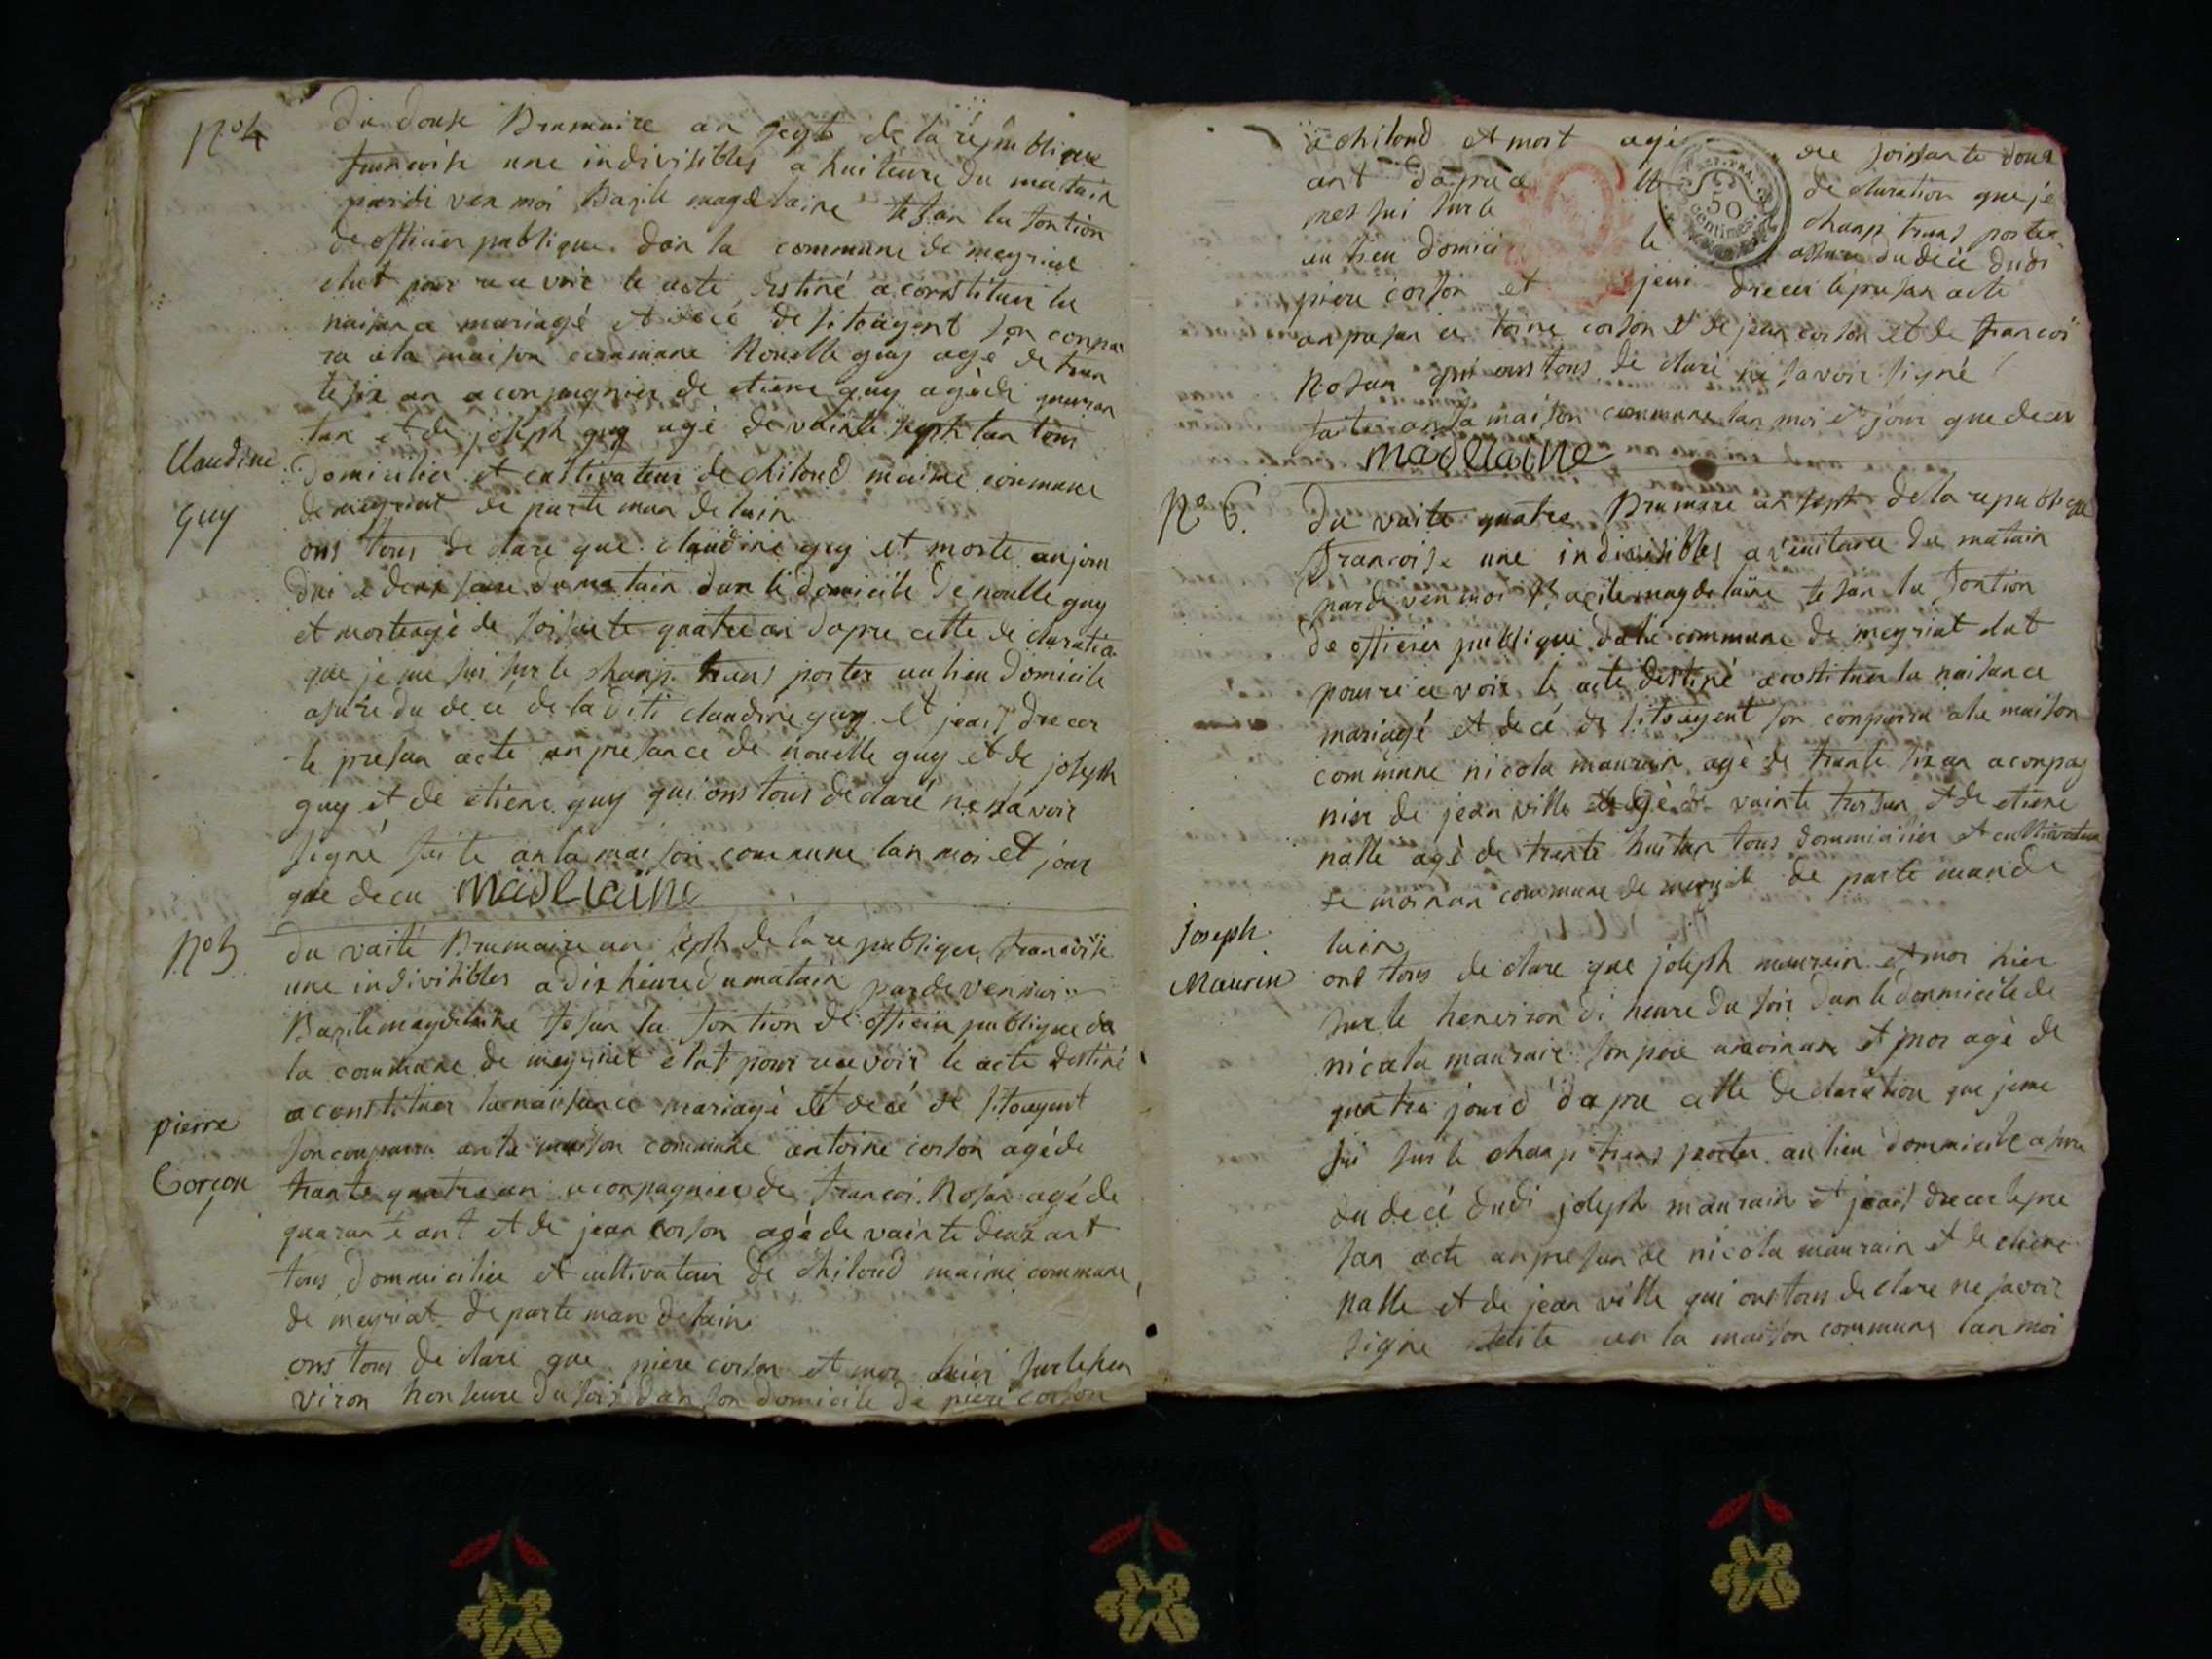 N° 4
du douse Brumaire an sept de la république
francoise une indivisibles a huiteure du matain
pardi ven moi Bazile magdelaine fesan la fontion
de officier publique dan la commune de meyriat
elut pour recevoir le acte destiné a constituer la
naisance mariagé et décé de sitoÿent son conpa
ru a la maison commune Nouelle guy agé de tran
te six an aconpagnier de etiene guy agé di quaran
tan et de joseph guy agé de vainte septh tan tous
Claudine
Guy
domicilier et cultivateur de chiloud maime commune
de meyriat de parte man de lain
ons tous de clare que claudine guy et morte aujour
dui a deux heure du matain dan le domicile de nouelle guy
et morte agé de soisante quatre an dapre cette de claratio
que je me sui sur le chanp trans porter au lieu domicile
asuré du de cé de la diti claudine guy et jenis drecer
le presan acte an presance de nouelle guy et de joseph
guy et de etiene guy qui ons tous declaré ne savoir
signé faite an la maison commune lan moi et jour
que decu madelaine
N° 5
du vaite Brumaire an septh de la re publique francoise
une indivisibles a dix heure du matain pardevenmoi
Bazile magdelaine fesan la fontion de officier publique de
la commune de meyriat elut pour recevoir le acte destiné
a constituer la naisance mariagé et decé de sitoyent
pierre
Corçon
son conparru an la maison commune antoine corson agé de
trante quatre an aconpagnier de francoi Rosan agé de
quarante ant et de jean corson agé de vainte deux ant
tous dommicilier et cultivateur de chiloud maime commune
de meyriat de parte man de lain
ons tous de claré que piere corson et mor hier sur lehen
viron honseure du soir dan son domicile de pieré corson
a chiloud et mort agé de soisante dous
ant dapre ce tt de claration que jé
mes sui sur le chanp trans porter
au lieu domici le assure du décé dudi
piere corson et jeni drecer le presan acte
an presan ce toine corson et de jean corson et de francoi
Rosan qui ons tous de claré ne savoir signé
faite an la maison commune lan moi et jour que decu
madelaine
50
centimes
N° 6.
Du vaite quatre Brumaire an septh de la republique
francoise une indivisibles a veuiteure du matain
parde ven moi Bazile magdelaine fesan la fontion
de officier publique de la commune de meyriat elut
pour re ce voir le acte destiné a costituer la naisance
mariagé et decé de sitoyent son conparru a la maison
commune nicola maurain agé de trante six an aconpag
nier de jean ville agé de vainte troisan et de etiene
nalle agé de trante huitan tous dommicilier et cultivateur
de moinan commune de meryat de parte mande
lain
joseph
Maurin
ont tous de clare que joseph maurain et mor hier
sur le henviron di heure du soir dan le dommicile de
nicola maurain son pere a moinan et mor agé de
quatre jourd dapre cette de claration que jeme
sui sur le chanp trans porter au lieu dommicile asure
du decé dudi joseph maurain et jenis drecer lepre
san acte anpresan de nicola maurain et de etiene
nalle et de jean ville qui ons tous de clare ne savoir
signe faite an la maison commune lan moi